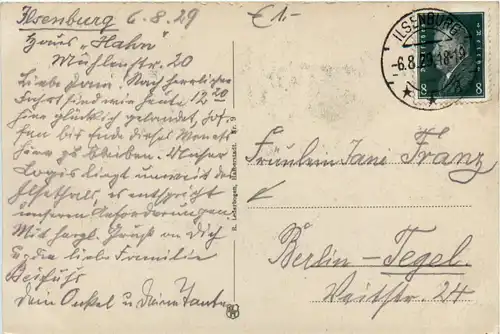 Ilsenburg 6.8.29
Haus "Hahn"
Mühlenstr. 20
Liebe Jani! Nach herrlicher
Fahrt sind wir heute 12 20
hier glücklich gelandet, hof-
fen bis Ende dieses Monats
hier zu bleiben. Unser
Logis liegt unweit des
Ilsethals, es entspricht
unseren Anforderungen
Mit herzl. Gruß an Dich
u. die liebe Familie
Dein Onkel u. Deine Tante
£1-
R. Lederbogen, Halberstadt. Nr. 9
ILSENBURG
-6.8.29.18-19
8 8
Fräulein Jane Franz
Berlin-Tegel
Veitstr. 24